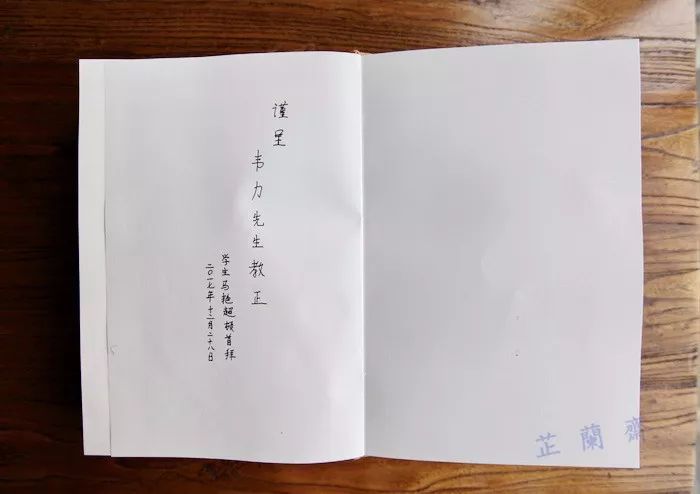 谨呈
韦力先生教正
学生马艳超顿首拜
二〇一七年十二月二十八日
芷蘭齋